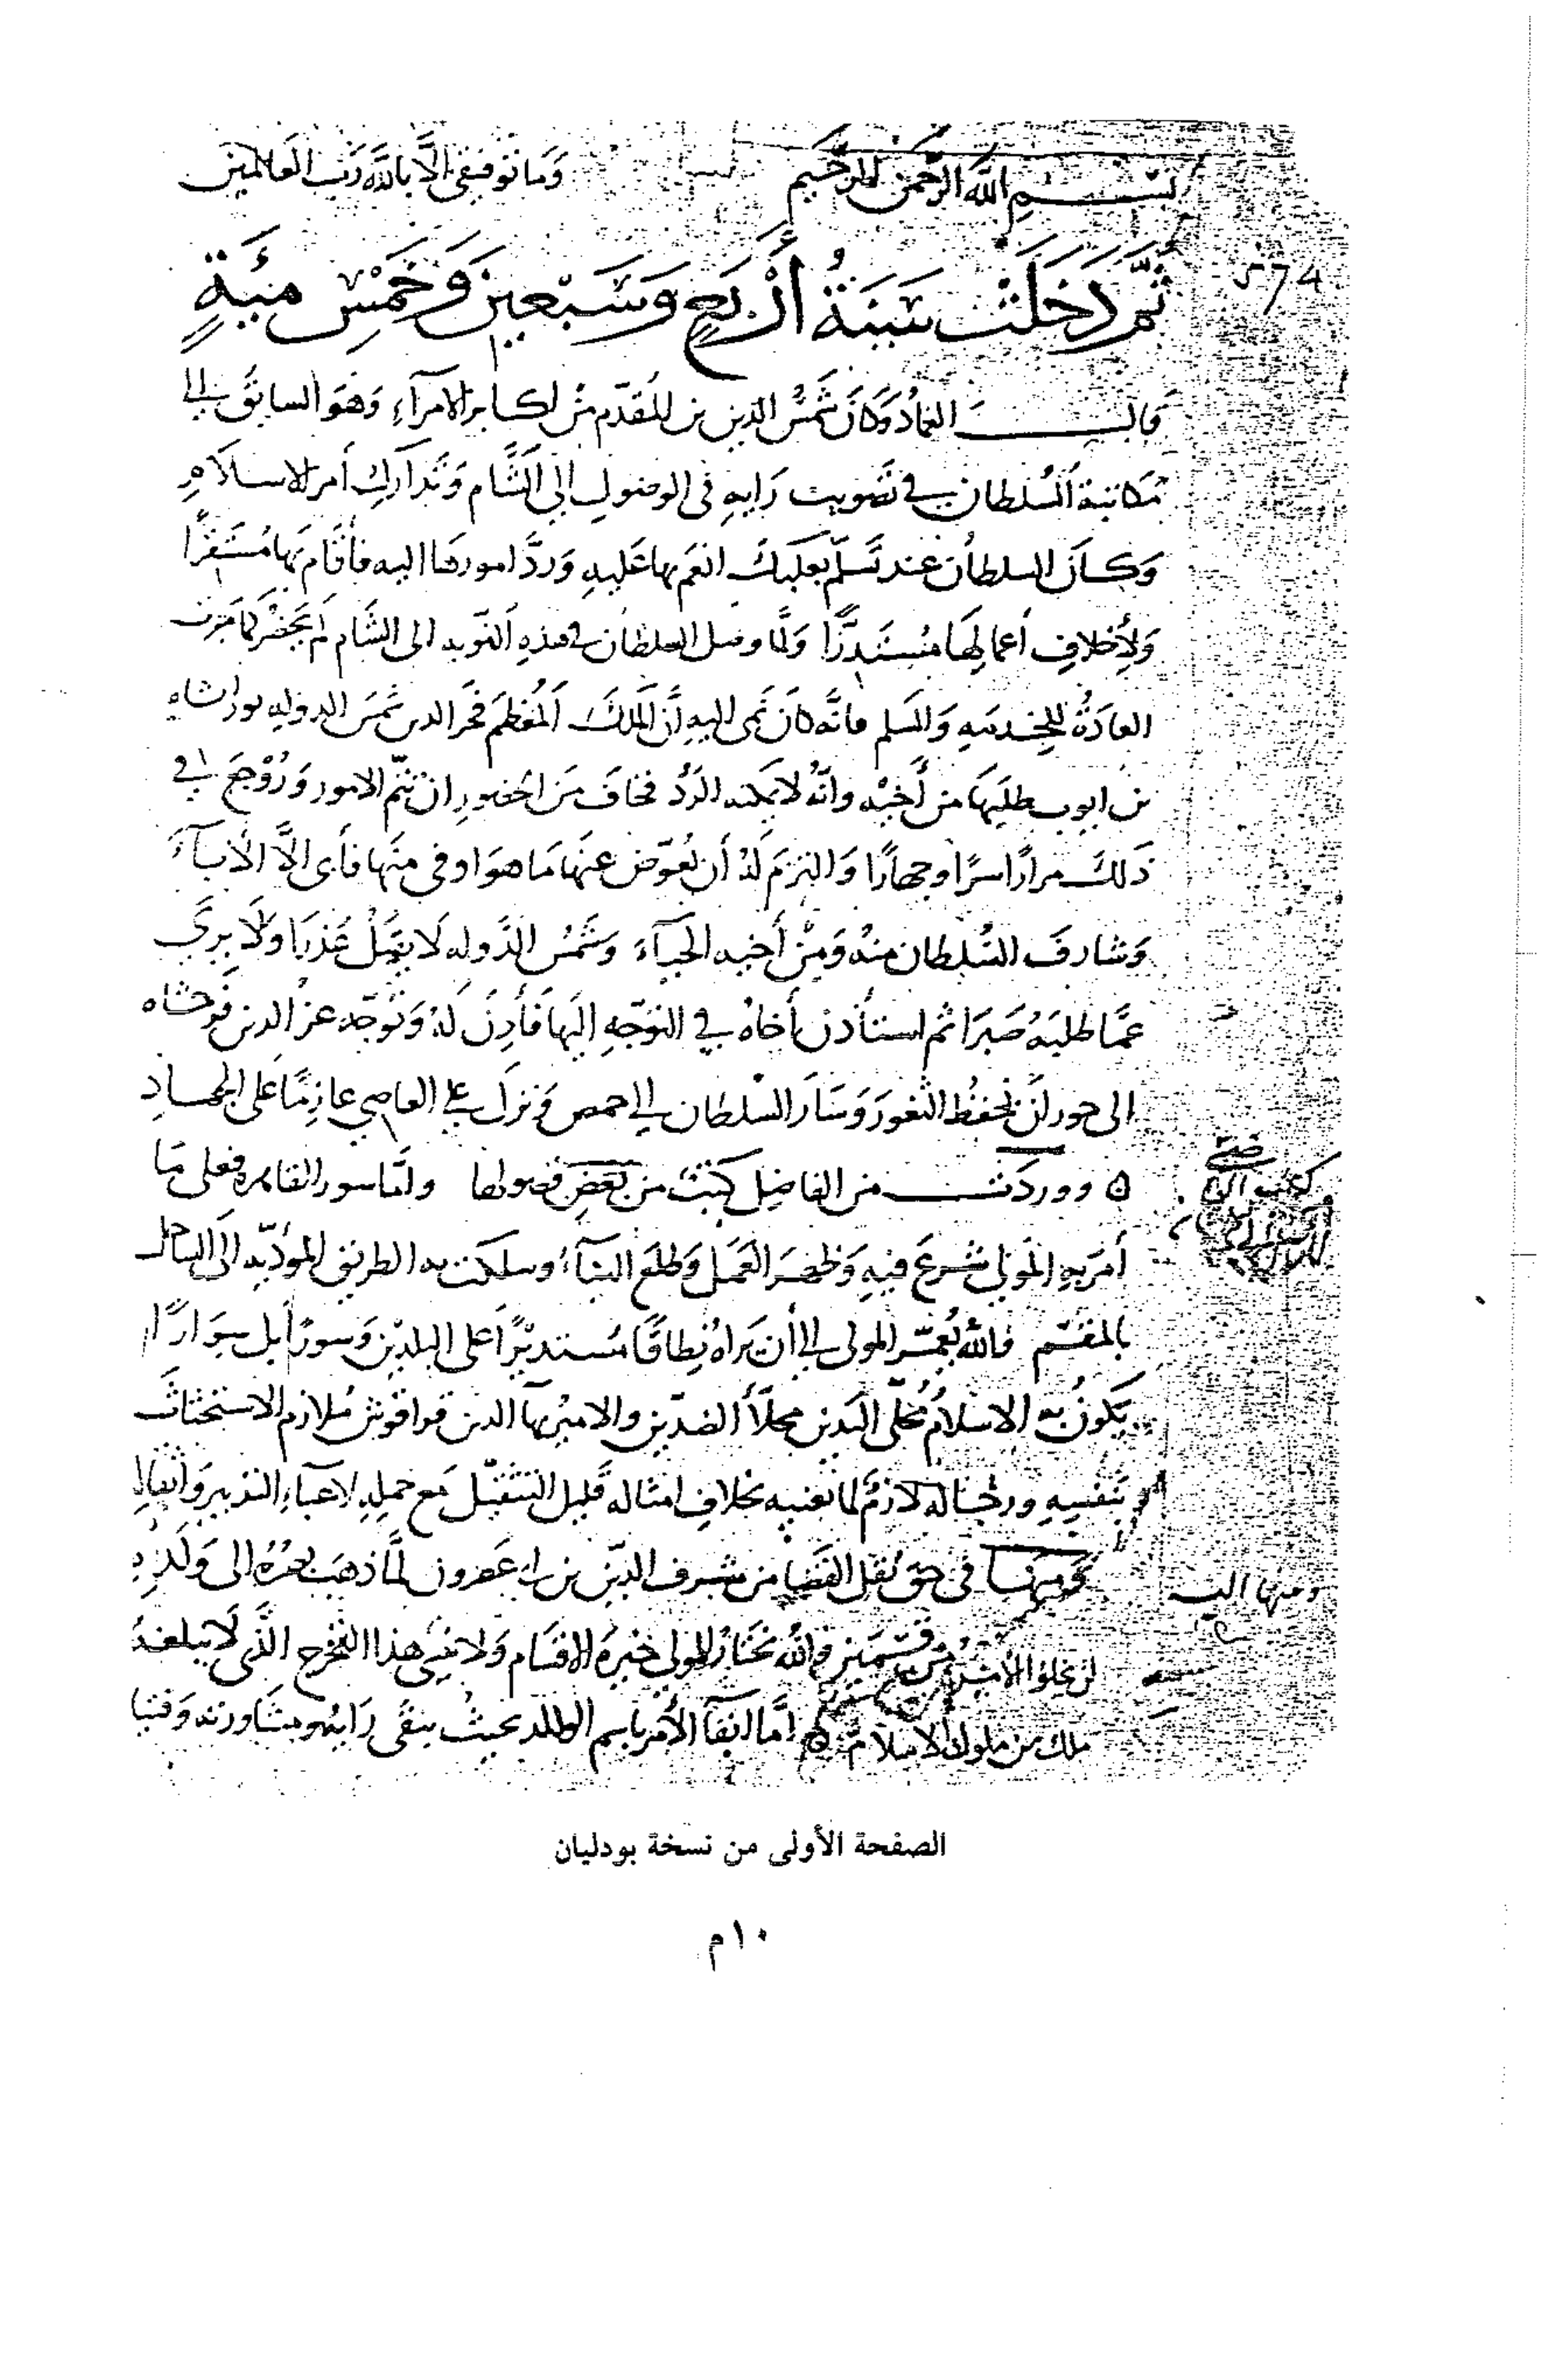 بسم الله الرحمن الرحيم وما توفيقي إلا بالله رب العالمين
574
ثُمَّ دَخَلَتْ سَنَةُ أَرْبَعٍ وَسَبْعِينَ وَخَمْسِ مِئَةٍ
قال العماد وكان شمس الدين بن المقدم من اكابر الامرآء وهو السابق الى
مكاتبة السلطان في تصويب رايه في الوصول الى الشام وتدارك أمر الاسلام
وكان السلطان عند تسلم بعلبك انعم بها عليه ورد امورها اليه فأقام بها مستقرا
ولأخلاف أعمالها مستدرا ولما وصل السلطان في هذه النوبه الى الشام لم يحضر كما جرت
العادة للخدمه والسلم فانه كان نمى اليه أن الملك المعظم فخر الدين شمس الدوله تورانشاه
بن ايوب طلبها من أخيه وانه لا يمكنه الرد فخاف من الحضور ان تتم الامور وروجع في
ذلك مرارا سرا وجهارا والتزم له أن يعوض عنها ما هو اوفى منها فأبى الا الابآء
وشارف السلطان منه ومن أخيه الحيآء وشمس الدوله لا يقبل عذرا ولا يرى
عما طلبه صبرا ثم استأذن أخاه في التوجه اليها فأذن له وتوجه عز الدين فرخشاه
الى حوران لحفظ الثغور وسار السلطان الى حمص ونزل على العاصي عازما على الجهاد
ووردت من الفاضل كتب من بعض فصولها واما سور القاهره فعلى ما
أمر به المولى شرع فيه وظهر العمل وطلع البنآء وسلكت به الطريق المؤديه الى الساحل
بالمقسم والله يعمر المولى الى أن يراه نطاقا مستديرا على البلدين وسورا بل سوارا
يكون به الاسلام محلى اليدين محلأ الضدين والامير بهآ الدين قراقوش ملازم الاستحثاث
بنفسه ورجاله لازم لما يعنيه بخلاف امثاله قليل التثقيل مع حمله لاعباء التدبير واثقاله
ومنها في حق نقل القضا من شرف الدين بن ابي عصرون لما ذهب بصره الى ولده
ومنها
لن يخلوا الامر من قسمين والله يختار للمولى خيرة الاقسام ولا ينسى هذا التحرج الذي لا يبلغه
ملك من ملوك الاسلام اما ابقآ الأمر باسم الوالد بحيث يبقى رايه ومشاورته وفتيا
الصفحة الأولى من نسخة بودليان
١٠م